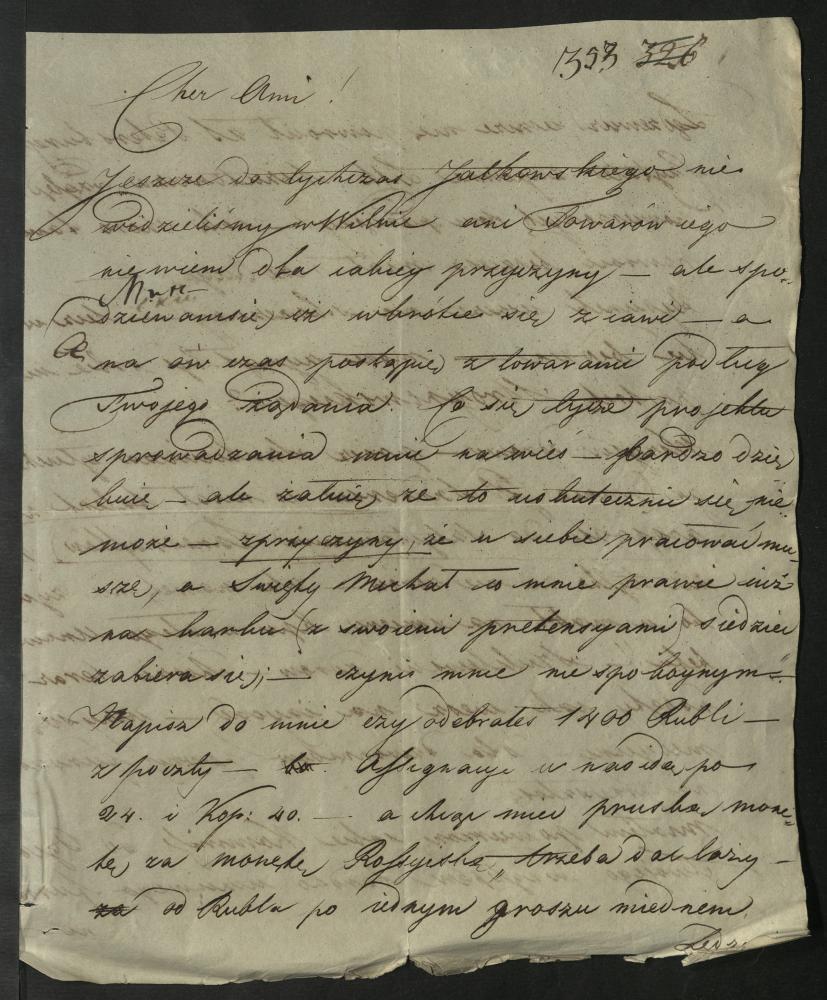 353 326
Cher Ami!
Jeszcze do tychczas Jałkowskiego nie
widzieliśmy w Wilnie ani Towarów iego
nie wiem dla iakiey przyczyny — ale spo-
dziewamsie, iż wkrótce się z iawi — a
na ów czas postąpię z towarami podług
Twojego żądania. Co się tycze projektu
sprowadzania mnie na wieś — bardzo dzię
kuię — ale żałuię że to uskutecznić się nie
może — z przyczyny, że u siebie pracować mu-
szę, a Święty Michał co mnie prawie iuż
na karku (z swoiemi pretensyami) siedzieć
zabiera się; — czyni mnie nie spokoynym —
Napisz do mnie czy odebrałeś 1400 Rubli —
z poczty — Assignacye u nas idą po
24. i Kop: 40. — a chcąc mieć pruską mone-
tę za monetę Rossyiską, trzeba dać łaży —
za od Rubla po iednym groszu miednem